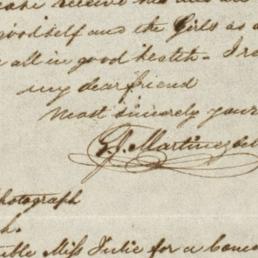 goodself and the Girls as a
all in good health - I re
my dear friend
most sincerely your
G.J. Martinez de
Photograph
h.
Miss Julie for a